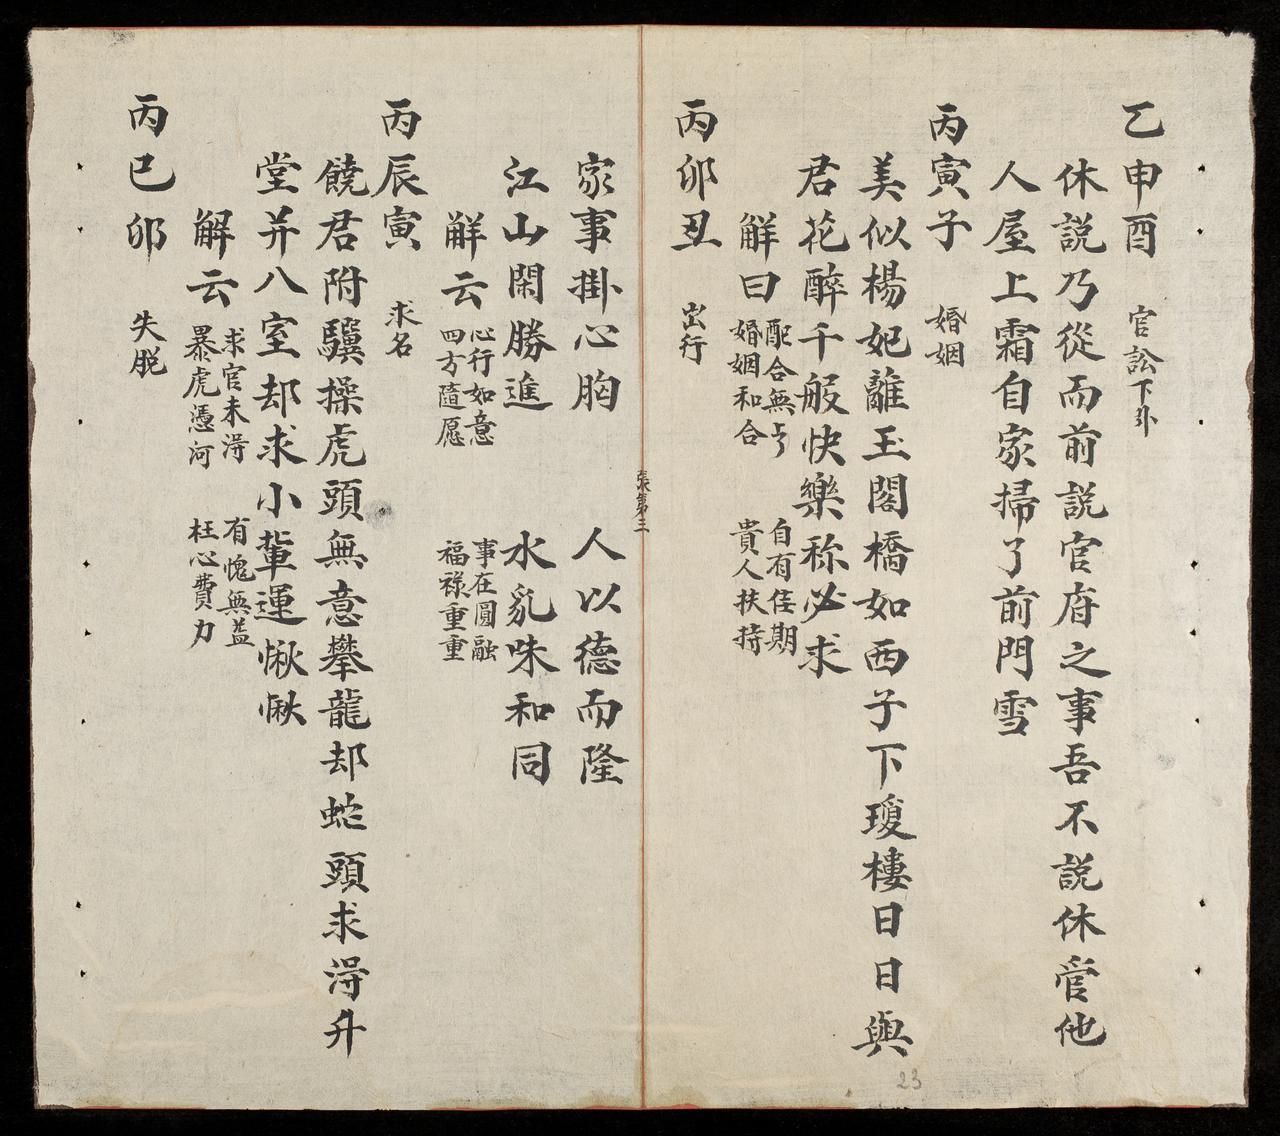 乙申酉 官訟下卦
休説乃從而前説官府之事吾不説休官他
人屋上霜自家掃了前門雪
丙寅子 婚姻
美似楊妃離玉閣橋如西子下瓊樓日日與
君花醉千般快樂称必求
解曰 配合無 自有佳期
婚姻和合 貴人扶持
丙卯丑 出行
家事掛心胸 人以德而隆
江山閑勝進 水乳味和同
解云 心行如意 事在圓融
四方隨愿 福祿重重
丙辰寅 求名
饒君附驥操虎頭無意攀龍却蛇頭求淂升
堂并八室却求小輩運愀愀
解云 求官未淂 有愧無益
暴虎憑河 枉心費力
丙巳卯 失脱
張第三
23